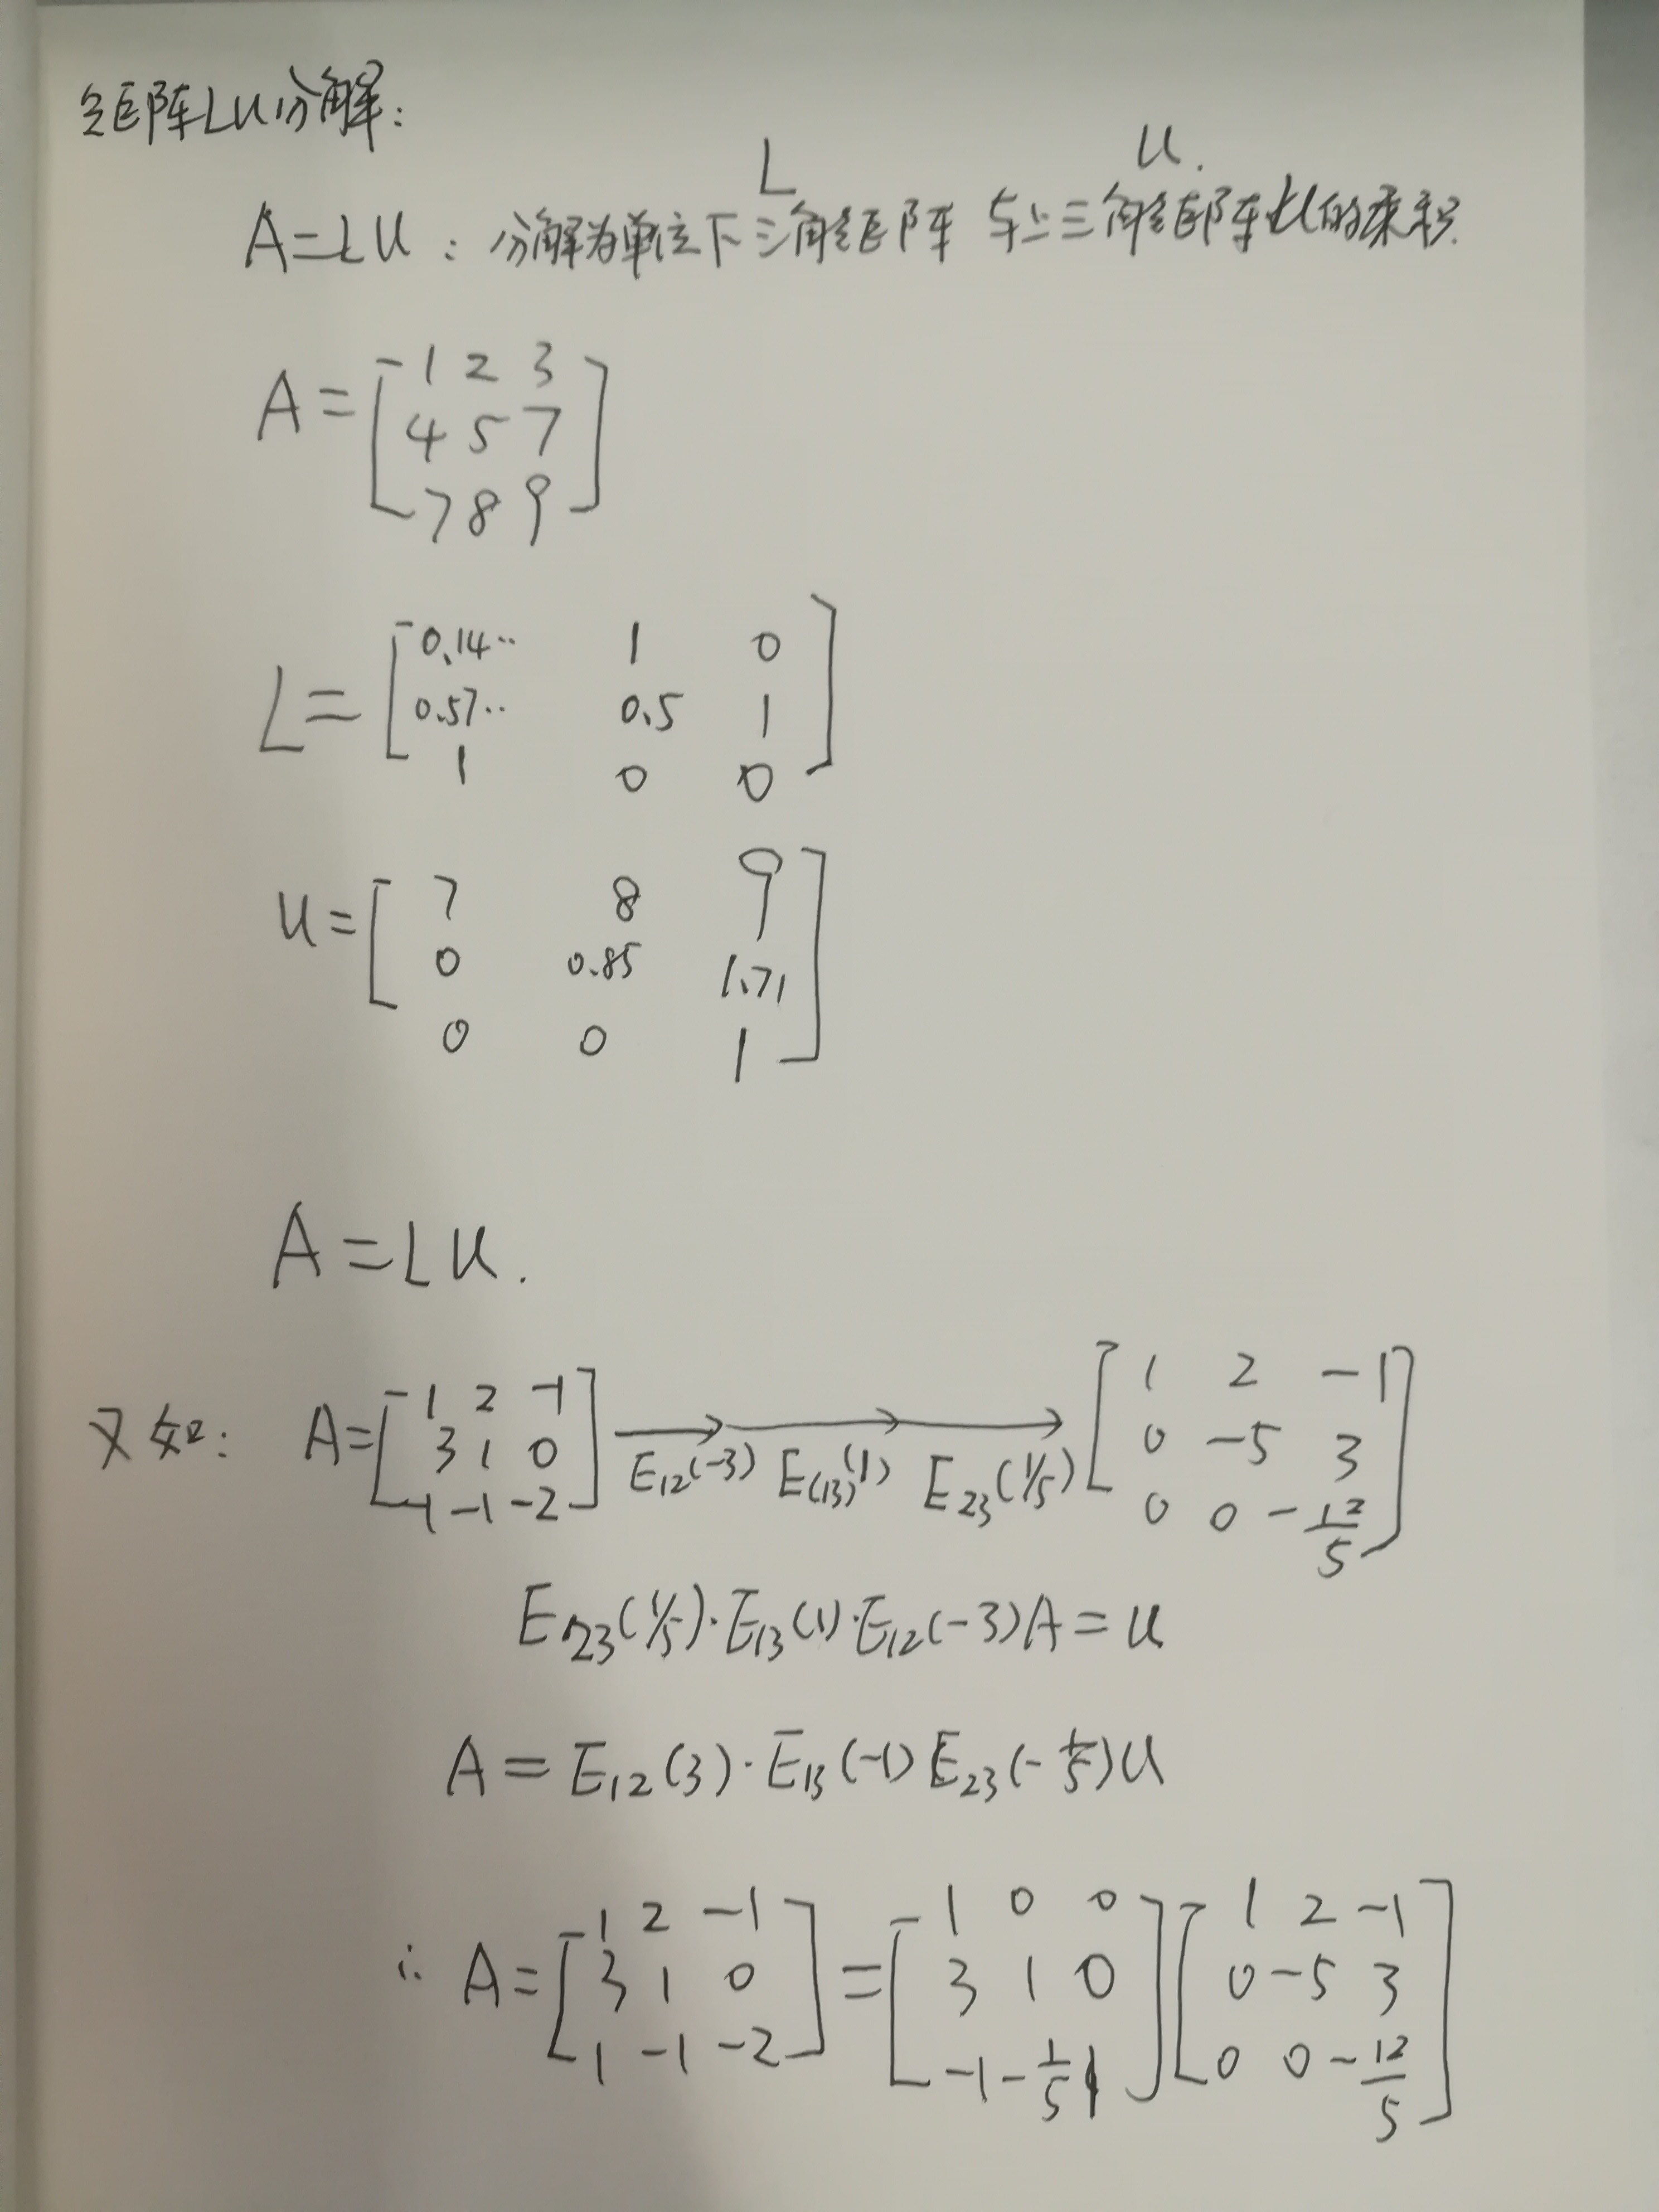 矩阵LU分解:
L U.
A=LU: 分解为单位下三角矩阵 与上三角矩阵U的乘积.
A=[1 2 3
4 5 7
7 8 9]
L=[0.14.. 1 0
0.57.. 0.5 1
1 0 0]
U=[7 8 9
0 0.85 1.71
0 0 1]
A=LU.
又如: A=[1 2 -1
3 1 0
-1 -1 -2] → E₁₂(-3) → E(₁₃)(1) → E₂₃(1/5) [1 2 -1
0 -5 3
0 0 -12/5]
E₂₃(1/5)·E₁₃(1)·E₁₂(-3)A=U
A=E₁₂(3)·E₁₃(-1)E₂₃(-1/5)U
∴ A=[1 2 -1
3 1 0
1 -1 -2]=[1 0 0
3 1 0
-1 -1/5 1][1 2 -1
0 -5 3
0 0 -12/5]